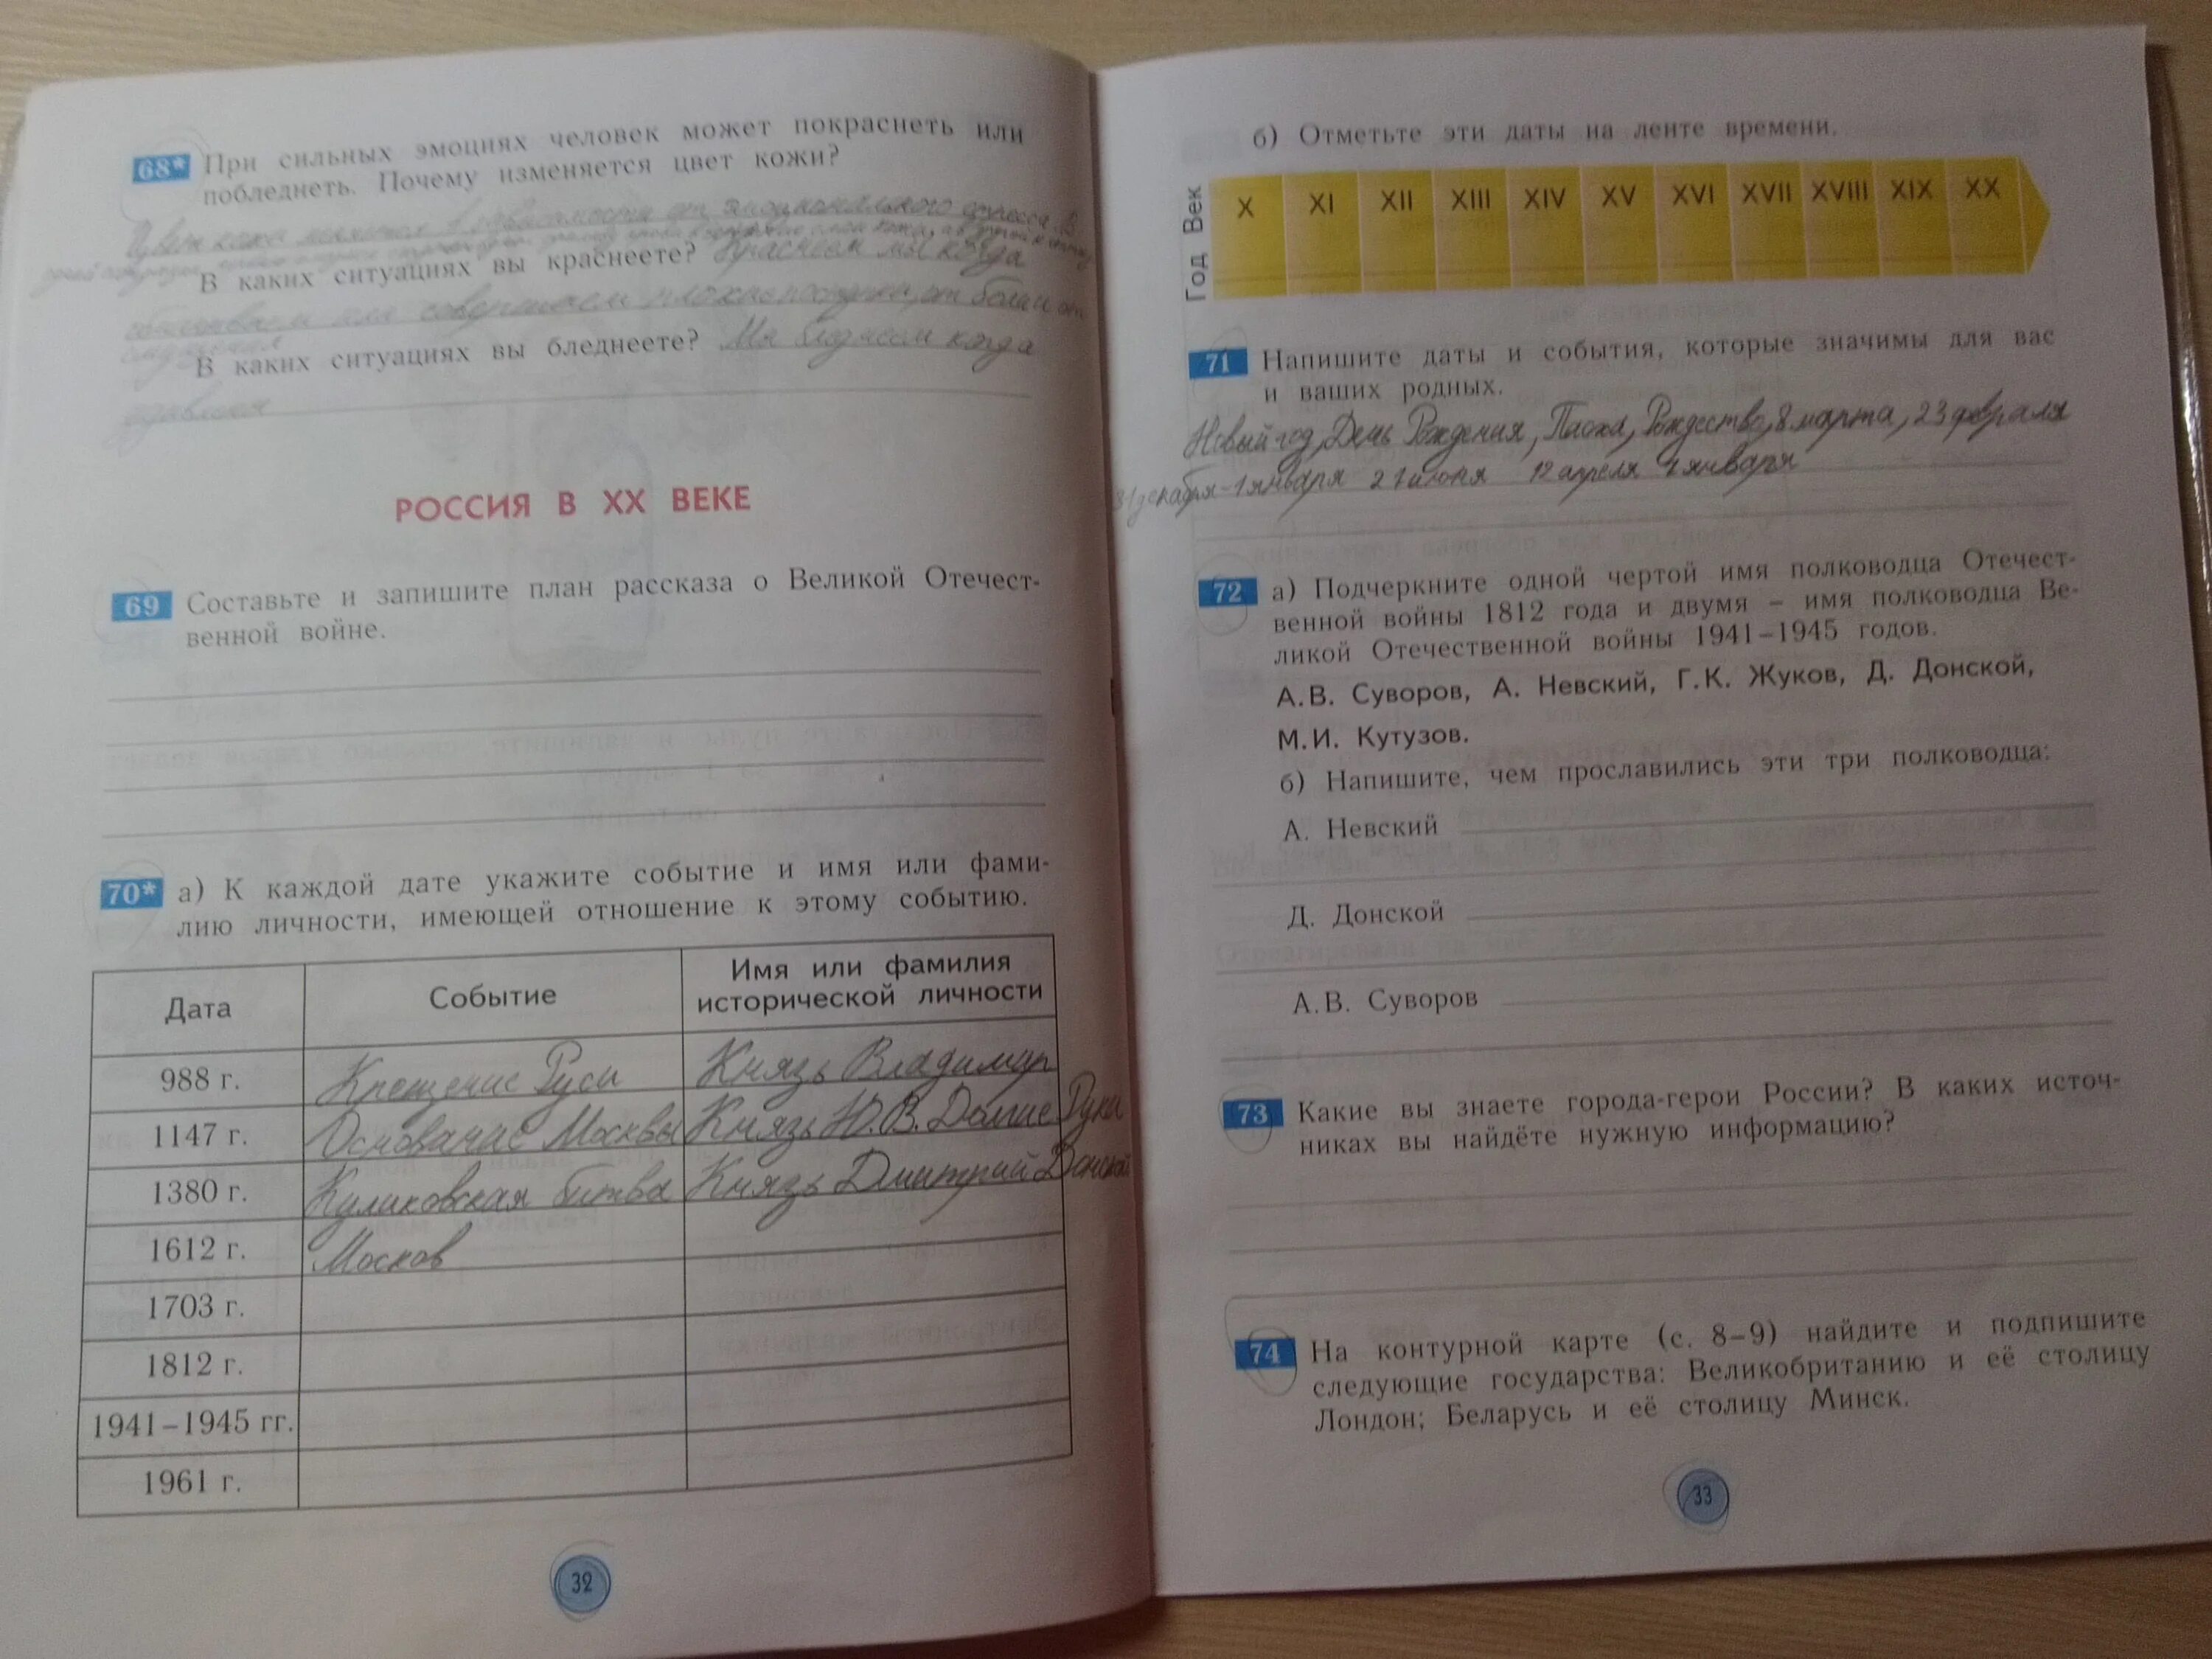 68* При сильных эмоциях человек может покраснеть или
побледнеть. Почему изменяется цвет кожи?
Цвет кожи меняется в зависимости от эмоционального стресса. В
В каких ситуациях вы краснеете? Краснеем мы когда
обманываем или совершаем от боли и от
В каких ситуациях вы бледнеете? Мы бледнеем когда
РОССИЯ В XX ВЕКЕ
69 Составьте и запишите план рассказа о Великой Отечест-
венной войне.
70* а) К каждой дате укажите событие и имя или фами-
лию личности, имеющей отношение к этому событию.
Дата Событие Имя или фамилия
исторической личности
988 г. Крещение Руси Князь Владимир
1147 г. Основание Москвы Князь Ю. В. Долгие Руки
1380 г. Куликовская битва Князь Дмитрий Донской
1612 г. Москов
1703 г.
1812 г.
1941–1945 гг.
1961 г.
32
б) Отметьте эти даты на ленте времени.
Век X XI XII XIII XIV XV XVI XVII XVIII XIX XX
Год
71 Напишите даты и события, которые значимы для вас
и ваших родных.
Новый год, День Рождения, Пасха, Рождество, 8 марта, 23 февраля
31 декабря-1 января 21 июня 12 апреля января
72 а) Подчеркните одной чертой имя полководца Отечест-
венной войны 1812 года и двумя – имя полководца Ве-
ликой Отечественной войны 1941–1945 годов.
А.В. Суворов, А. Невский, Г.К. Жуков, Д. Донской,
М.И. Кутузов.
б) Напишите, чем прославились эти три полководца:
А. Невский
Д. Донской
А.В. Суворов
73 Какие вы знаете города-герои России? В каких источ-
никах вы найдёте нужную информацию?
74 На контурной карте (с. 8–9) найдите и подпишите
следующие государства: Великобританию и её столицу
Лондон; Беларусь и её столицу Минск.
33